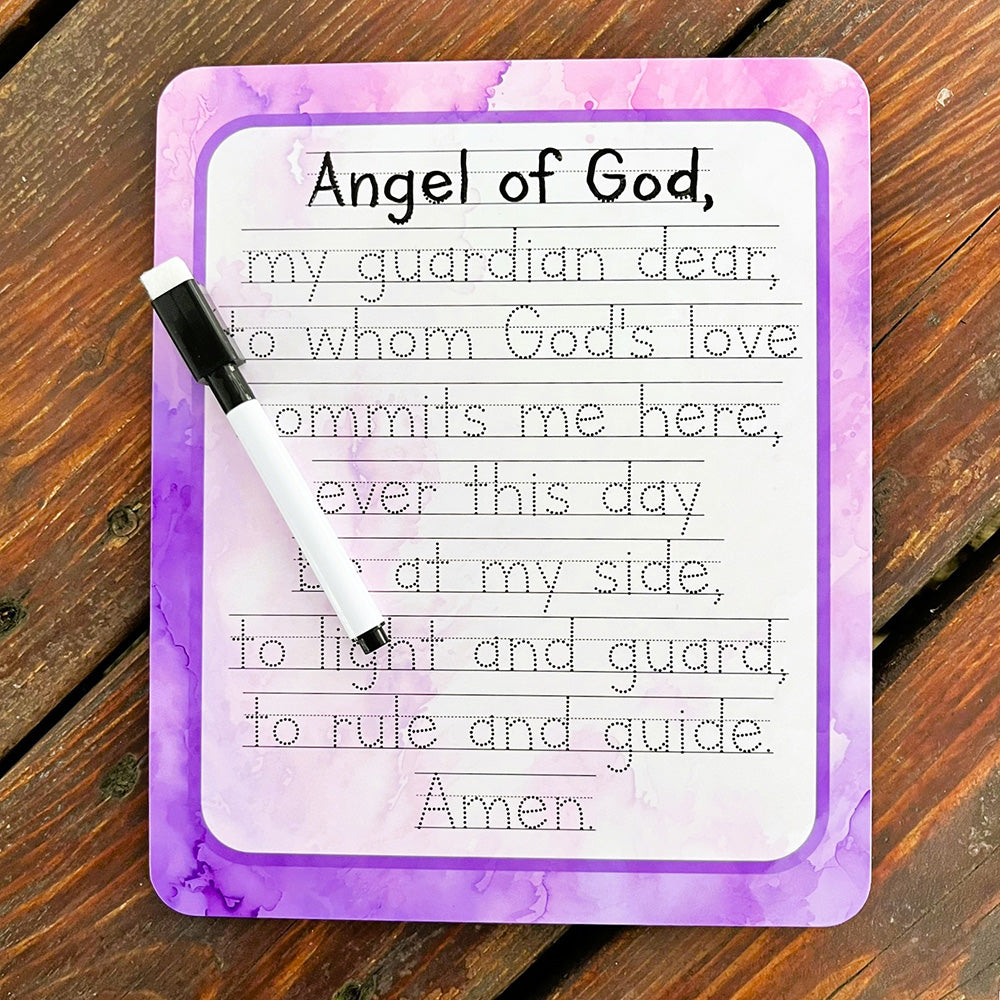 Angel of God,
my guardian dear,
to whom God's love
ommits me here,
ever this day
be at my side,
to light and guard,
to rule and guide.
Amen.